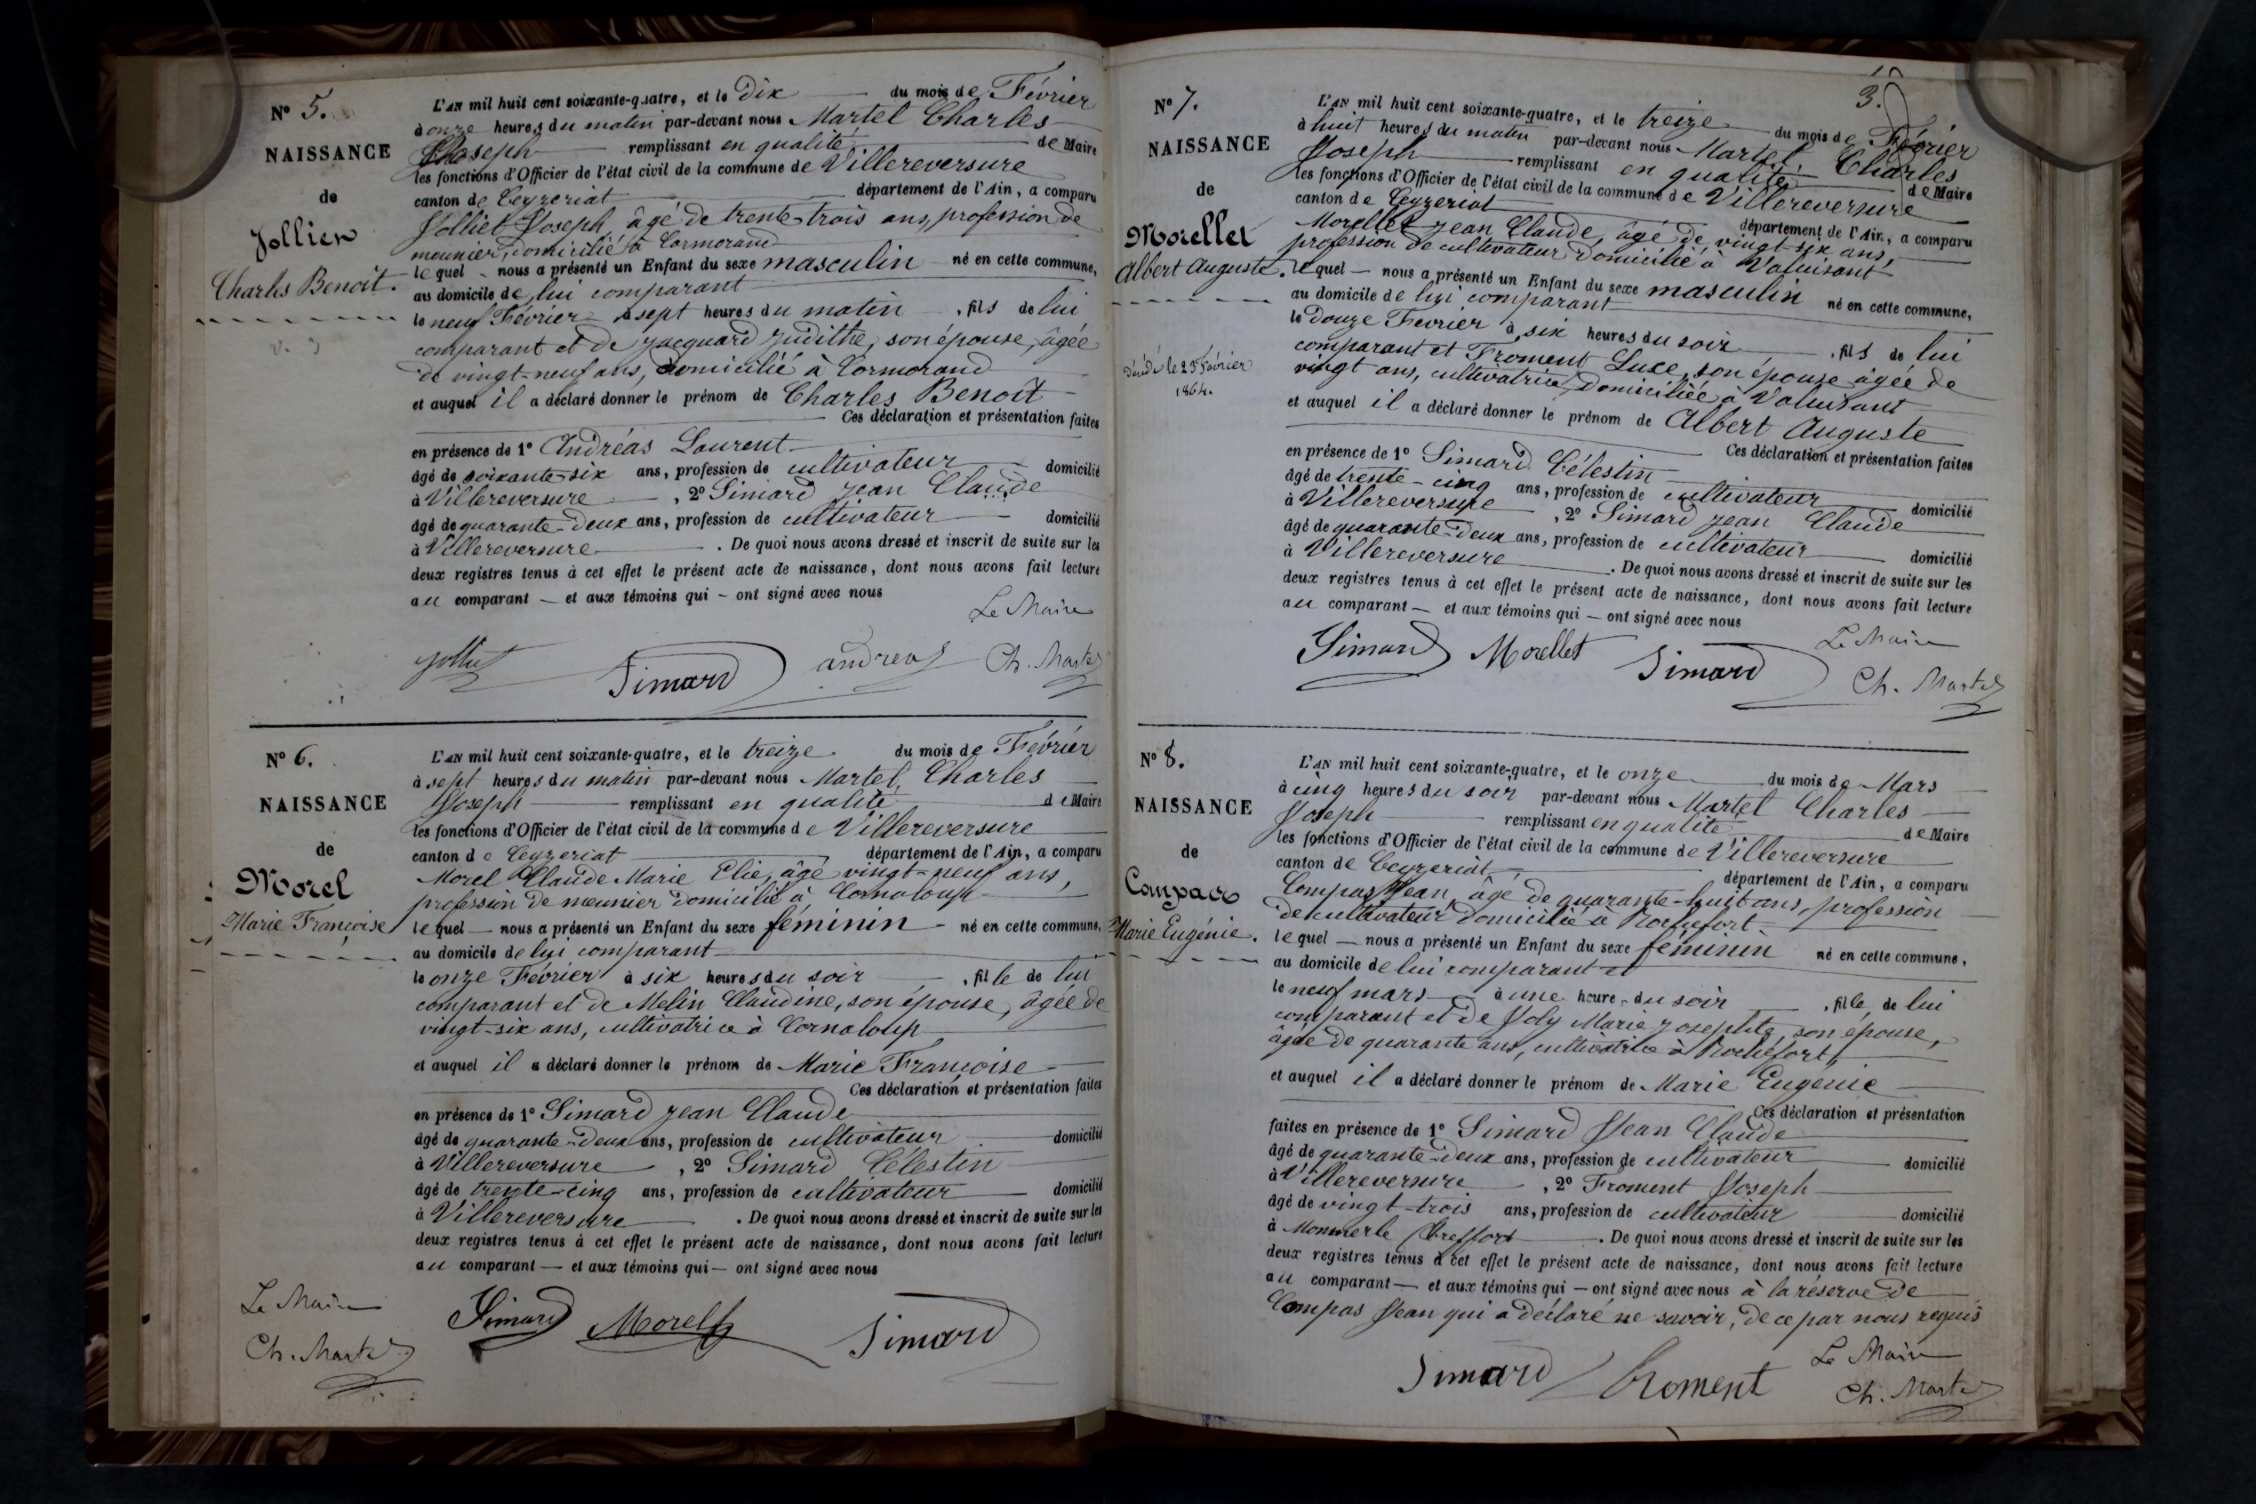 N° 5.
NAISSANCE
de
Jollier
Charles Benoit.
L'AN mil huit cent soixante-quatre, et le dix du mois de Février
à onze heures du matin par-devant nous Martel Charles
Joseph remplissant en qualité de Maire
les fonctions d'Officier de l'état civil de la commune de Villereversure
canton de Ceyzeriat département de l'Ain, a comparu
Jolliet Joseph, âgé de trente-trois ans, profession de
meunier, domicilié à Cormorand
lequel nous a présenté un Enfant du sexe masculin né en cette commune,
au domicile de lui comparant
le neuf Février à sept heures du matin, fils de lui
comparant et de Jacquard Judithe, son épouse, âgée
de vingt-neuf ans, domicilié à Cormorand
et auquel il a déclaré donner le prénom de Charles Benoît
Ces déclaration et présentation faites
en présence de 1° Andréas Laurent
âgé de soixante-six ans, profession de cultivateur domicilié
à Villereversure, 2° Simard Jean Claude
âgé de quarante-deux ans, profession de cultivateur domicilié
à Villereversure. De quoi nous avons dressé et inscrit de suite sur les
deux registres tenus à cet effet le présent acte de naissance, dont nous avons fait lecture
au comparant — et aux témoins qui — ont signé avec nous
Le Maire
Jolliet Simard andreas Ch. Martel
N° 6.
NAISSANCE
de
Morel
Marie Françoise
L'AN mil huit cent soixante-quatre, et le treize du mois de Février
à sept heures du matin par-devant nous Martel Charles
Joseph remplissant en qualité de Maire
les fonctions d'Officier de l'état civil de la commune de Villereversure
canton de Ceyzeriat département de l'Ain, a comparu
Morel Claude Marie Elie, âgé vingt-neuf ans,
profession de meunier domicilié à Cornaloup
lequel — nous a présenté un Enfant du sexe féminin né en cette commune,
au domicile de lui comparant
le onze Février à six heures du soir, fille de lui
comparant et de Mélin Claudine, son épouse, âgée de
vingt-six ans, cultivatrice à Cornaloup
et auquel il a déclaré donner le prénom de Marie Françoise
Ces déclaration et présentation faites
en présence de 1° Simard Jean Claude
âgé de quarante-deux ans, profession de cultivateur domicilié
à Villereversure, 2° Simard Célestin
âgé de trente-cinq ans, profession de cultivateur domicilié
à Villereversure. De quoi nous avons dressé et inscrit de suite sur les
deux registres tenus à cet effet le présent acte de naissance, dont nous avons fait lecture
au comparant — et aux témoins qui — ont signé avec nous
Le Maire
Ch. Martel Simard Morel Simard
3.
N° 7.
NAISSANCE
de
Morellet
Albert Auguste.
Décédé le 23 Février
1864.
L'AN mil huit cent soixante-quatre, et le treize du mois de Février
à huit heures du matin par-devant nous Martel Charles
Joseph remplissant en qualité de Maire
les fonctions d'Officier de l'état civil de la commune de Villereversure
canton de Ceyzeriat département de l'Ain, a comparu
Morellet Jean Claude, âgé de vingt-six ans,
profession de cultivateur domicilié à Valuisant
lequel — nous a présenté un Enfant du sexe masculin né en cette commune,
au domicile de lui comparant
le douze Fevrier à six heures du soir, fils de lui
comparant et Froment Luce, son épouse âgée de
vingt ans, cultivatrice, domiciliée à Valuisant
et auquel il a déclaré donner le prénom de Albert Auguste
Ces déclaration et présentation faites
en présence de 1° Simard Célestin
âgé de trente-cinq ans, profession de cultivateur domicilié
à Villereversure, 2° Simard Jean Claude
âgé de quarante-deux ans, profession de cultivateur domicilié
à Villereversure. De quoi nous avons dressé et inscrit de suite sur les
deux registres tenus à cet effet le présent acte de naissance, dont nous avons fait lecture
au comparant — et aux témoins qui — ont signé avec nous
Le Maire
Simard Morellet Simard Ch. Martel
N° 8.
NAISSANCE
de
Compas
Marie Eugénie.
L'AN mil huit cent soixante-quatre, et le onze du mois de Mars
à cinq heures du soir par-devant nous Martel Charles
Joseph remplissant en qualité de Maire
les fonctions d'Officier de l'état civil de la commune de Villereversure
canton de Ceyzeriat département de l'Ain, a comparu
Compas Jean, âgé de quarante-huit ans, profession
de cultivateur domicilié à Rochefort
lequel — nous a présenté un Enfant du sexe féminin né en cette commune,
au domicile de lui comparant
le neuf mars à une heure du soir, fille de lui
comparant et de Joly Marie Josephte, son épouse,
âgée de quarante ans, cultivatrice à Rochefort
et auquel il a déclaré donner le prénom de Marie Eugenie
Ces déclaration et présentation
faites en présence de 1° Simard Jean Claude
âgé de quarante-deux ans, profession de cultivateur domicilié
à Villereversure, 2° Froment Joseph
âgé de vingt-trois ans, profession de cultivateur domicilié
à Monmerle Treffort. De quoi nous avons dressé et inscrit de suite sur les
deux registres tenus à cet effet le présent acte de naissance, dont nous avons fait lecture
au comparant — et aux témoins qui — ont signé avec nous à la réserve de
Compas Jean qui a déclaré ne savoir, de ce par nous requis
Le Maire
Simard Froment Ch. Martel